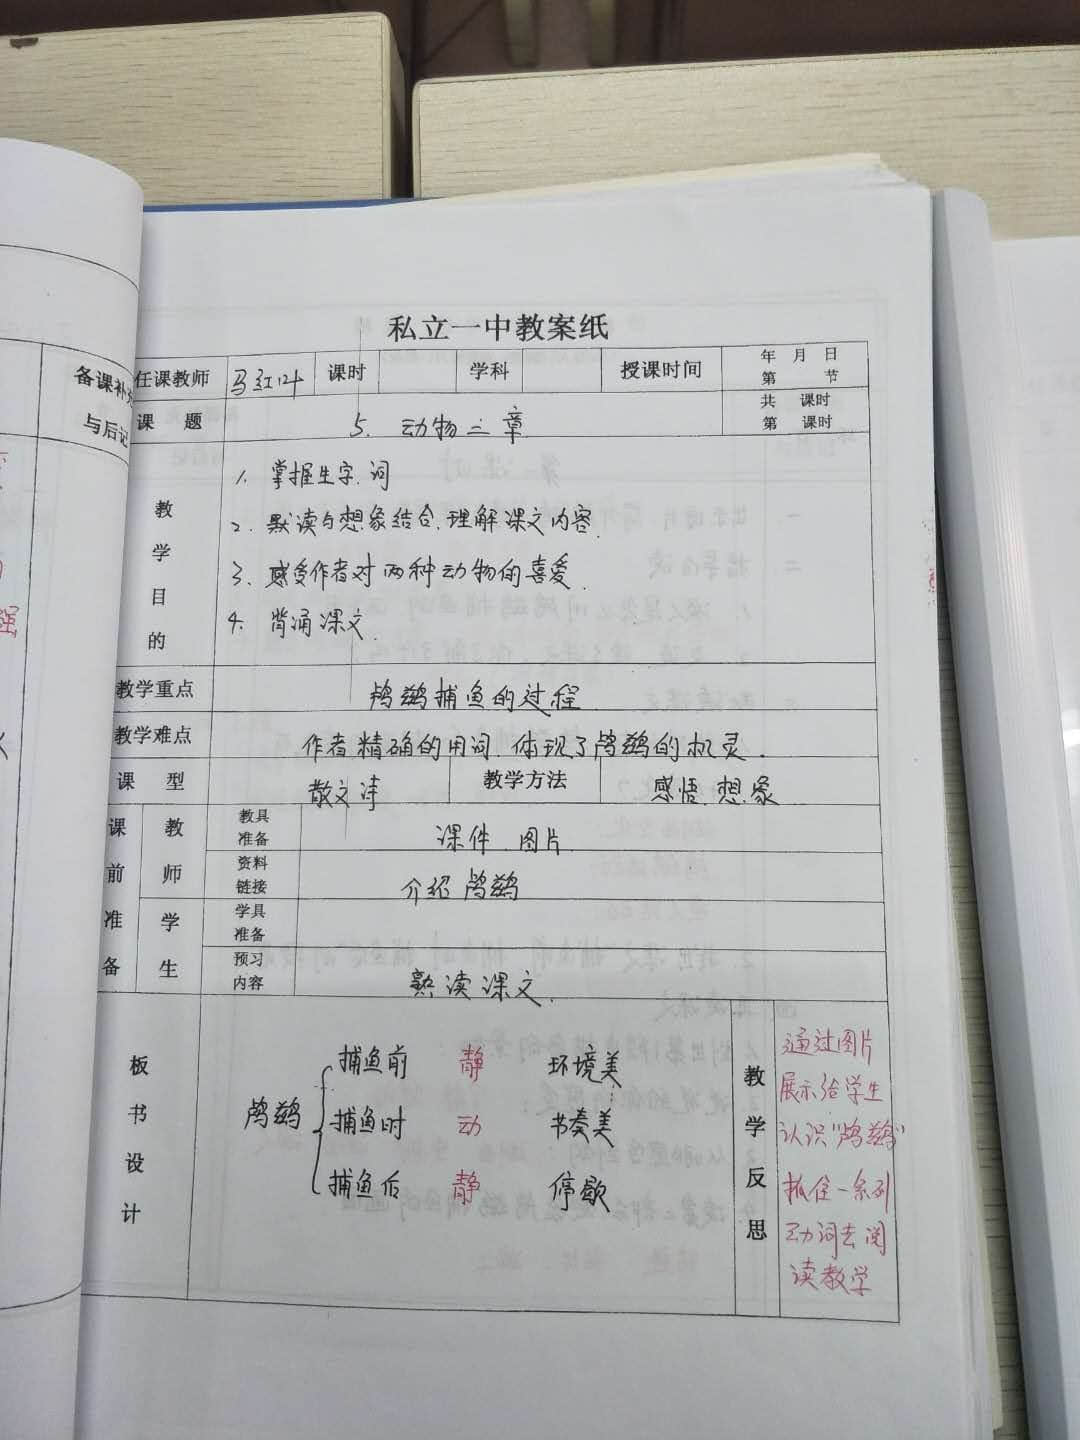 私立一中教案纸
备课补充
与后记
任课教师 课时 学科 授课时间 年 月 日
第 节
课 题 5. 动物二章 共 课时
第 课时
教学目的
1. 掌握生字、词
2. 默读与想象结合,理解课文内容.
3. 感受作者对两种动物的喜爱.
4. 背诵课文.
教学重点 鸬鹚捕鱼的过程.
教学难点 作者精确的用词.体现了鸬鹚的机灵.
课 型 散文诗 教学方法 感悟.想象
课前准备
教师
教具准备 课件.图片
资料链接 介绍鸬鹚
学生
学具准备
预习内容 熟读课文.
板书设计
鸬鹚
捕鱼前 静 环境美
捕鱼时 动 节奏美
捕鱼后 静 停歇
教学反思
通过图片
展示给学生
认识“鸬鹚”
抓住一系列
动词去阅
读教学
强